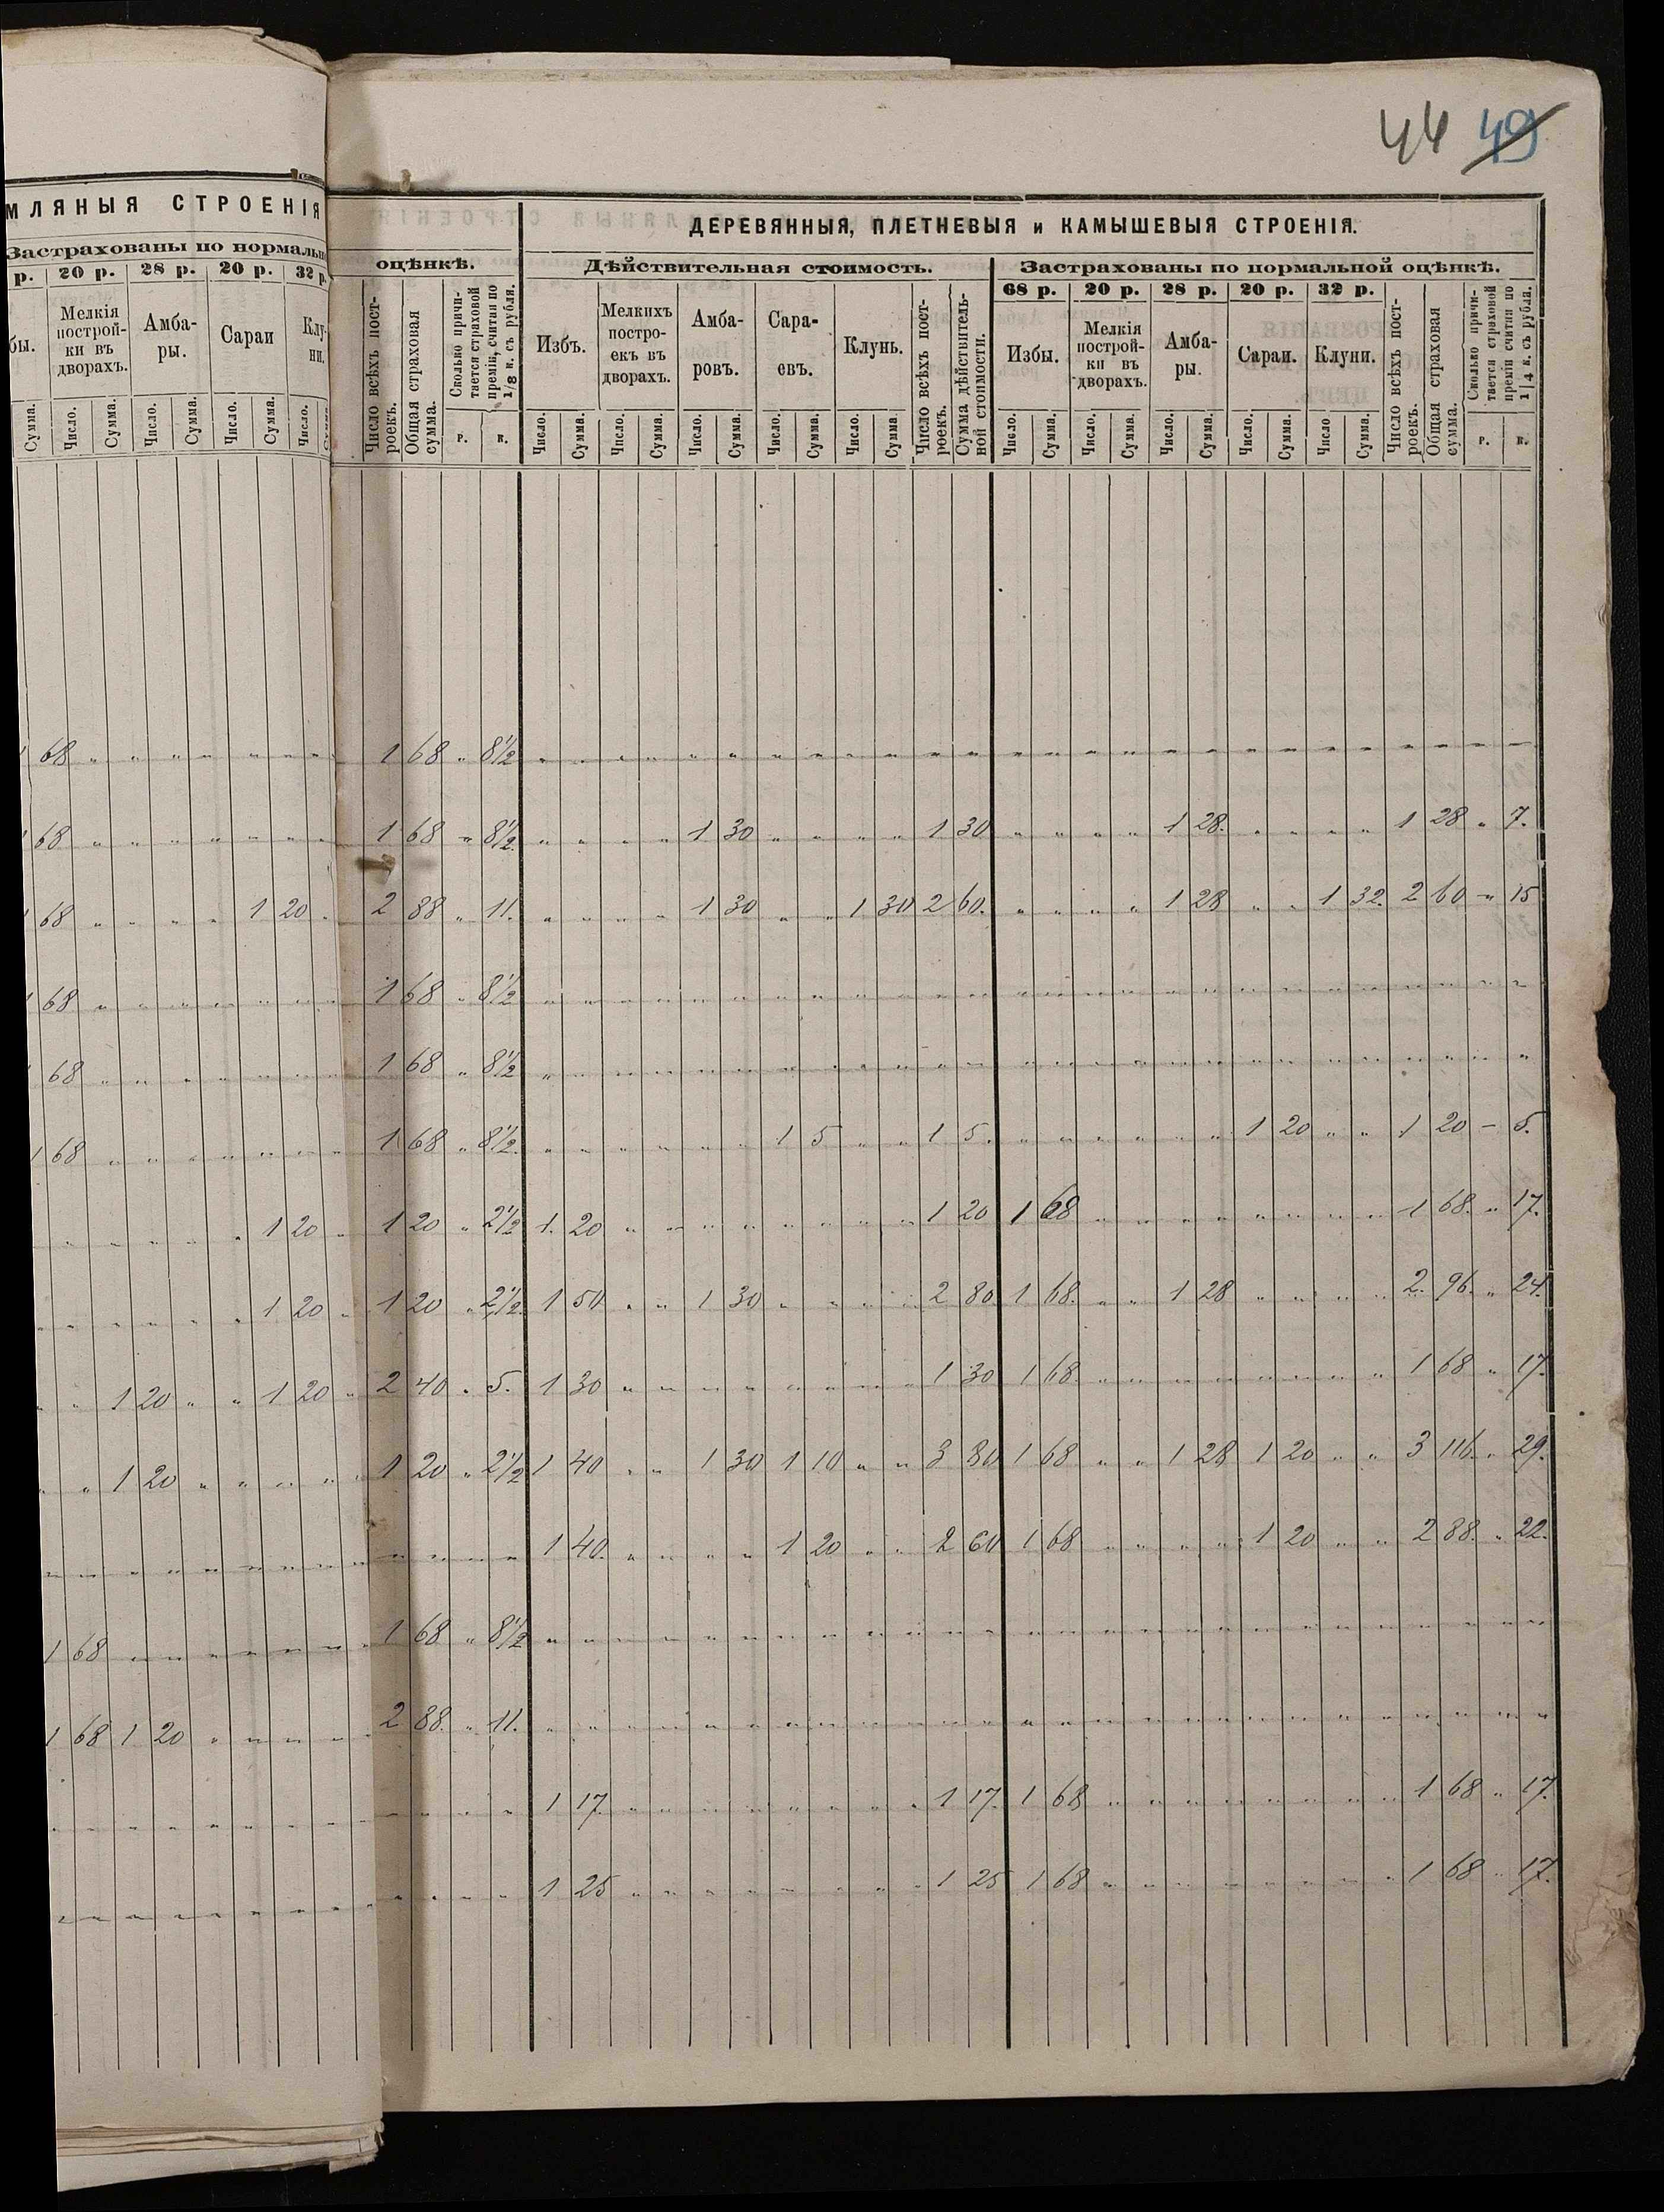 44 49
МЛЯНЫЯ СТРОЕНІЯ
ДЕРЕВЯННЫЯ, ПЛЕТНЕВЫЯ и КАМЫШЕВЫЯ СТРОЕНІЯ.
Застрахованы по нормальн
оцѣнкѣ.
Дѣйствительная стоимость.
Застрахованы по нормальной оцѣнкѣ.
р. 20 р. 28 р. 20 р. 32 р.
68 р. 20 р. 28 р. 20 р. 32 р.
бы.
Мелкія построй-
ки въ
дворахъ.
Амба-
ры.
Сараи
Клу-
ни.
Число всѣхъ пост-
роекъ.
Общая страховая
сумма.
Сколько причи-
тается страховой
преміи, считая по
1/8 к. съ рубля.
Избъ.
Мелкихъ
постро-
екъ въ
дворахъ.
Амба-
ровъ.
Сара-
евъ.
Клунь.
Число всѣхъ пост-
роекъ.
Сумма дѣйствитель-
ной стоимости.
Избы.
Мелкія
построй-
ки въ
дворахъ.
Амба-
ры.
Сараи.
Клуни.
Число всѣхъ пост-
роекъ.
Общая страховая
сумма.
Сколько причи-
тается страховой
преміи считая по
1/4 к. съ рубля.
Сумма. Число. Сумма. Число. Сумма. Число. Сумма. Число.
р. к. Число. Сумма. Число. Сумма. Число. Сумма. Число. Сумма. Число. Сумма Число. Сумма. Число. Сумма. Число. Сумма. Число. Сумма. Число Сумма. р. к.
68 " " " " " " " 1 68 " 8 1/2 " " " " " " " " " " " " " " " " " " " " " " " " " "
68 " " " " " " " 1 68 " 8 1/2 " " " " 1 30 " " " " 1 30 " " " " 1 28. " " " " 1 28 " 7.
68 " " " " 1 20 " 2 88 " 11. " " " " 1 30 " " 1 30 2 60. " " " " 1 28 " " 1 32. 2 60 " 15
68 " " " " " " " 1 68 " 8 1/2 " " " " " " " " " " " " " " " " " " " " " " " " " "
68 " " " " " " " 1 68 " 8 1/2 " " " " " " " " " " " " " " " " " " " " " " " " " "
1 68 " " " " " " " 1 68 " 8 1/2. " " " " " " 1 5 " " 1 5. " " " " " " 1 20 " " 1 20 – 5.
" " " " " 1 20 " 1 20 " 2 1/2 1. 20 " " " " " " " " 1 20 1 68 " " " " " " " " 1 68. " 17.
" " " " " " 1 20 " 1 20 " 2 1/2. 1 50 " " 1 30 " " " " 2 80 1 68. " " 1 28 " " " " 2. 96. " 24.
" " 1 20 " " 1 20 " 2 40 " 5. 1 30 " " " " " " " " 1 30 1 68. " " " " " " " " 1 68 " 17.
" " 1 20 " " " " " 1 20 " 2 1/2 1 40 " " 1 30 1 10 " " 3 80 1 68 " " 1 28 1 20 " " 3 116. " 29.
" " " " " " " " " " " " " 1 40. " " " " 1 20 " " 2 60 1 68 " " " " 1 20 " " 2 88. " 22.
1 68 " " " " " " " 1 68 " 8 1/2 " " " " " " " " " " " " " " " " " " " " " " " " " "
1 68 1 20 " " " " " 2 88. " 11. " " " " " " " " " " " " " " " " " " " " " " " " " "
" " " " " " " " " " " " " 1 17. " " " " " " " " 1 17. 1 68 " " " " " " " " 1 68 " 17.
" " " " " " " " " " " " " 1 25 " " " " " " " " 1 25 1 68 " " " " " " " " 1 68 " 17.